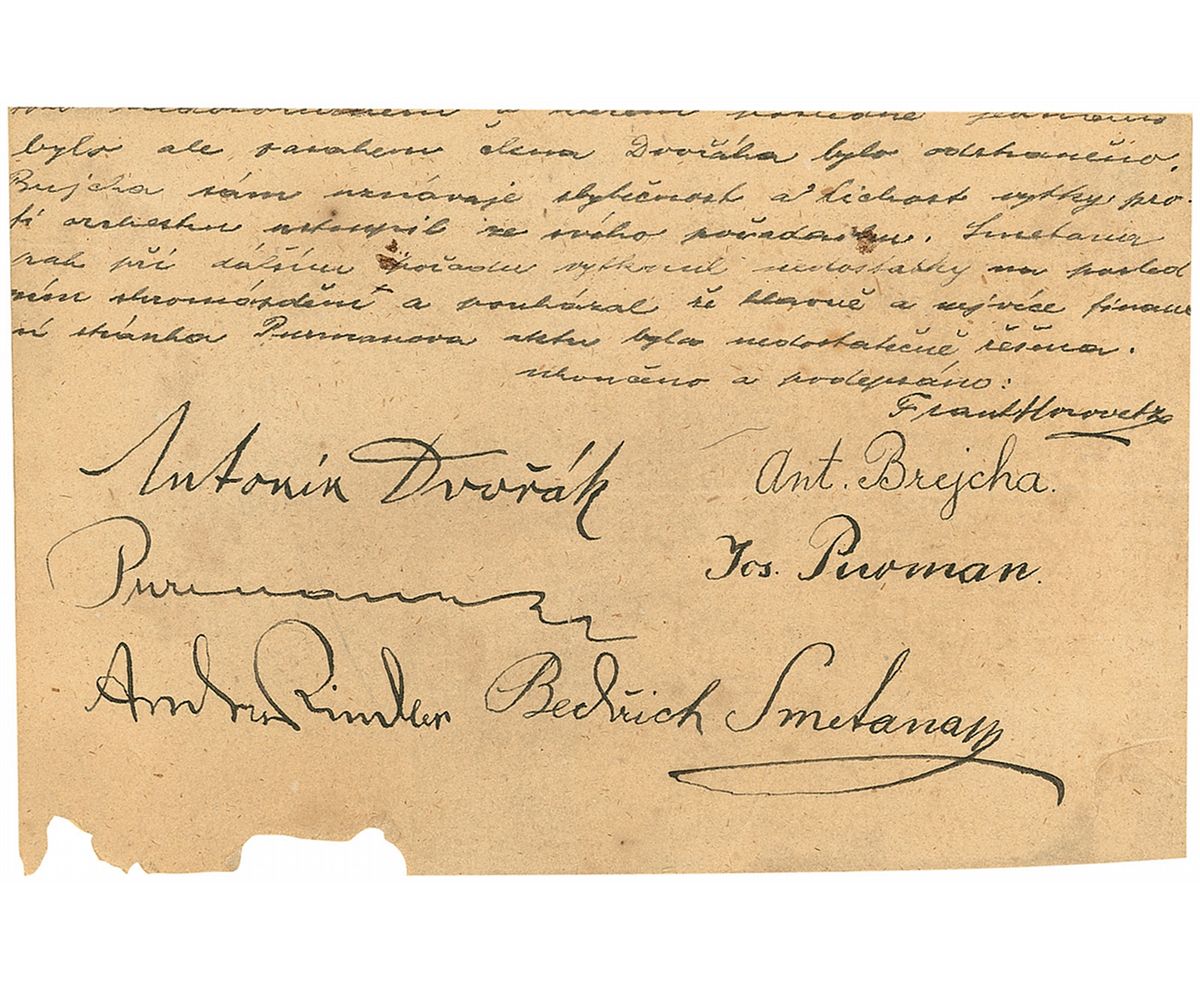 bylo ale zasahem člena Dvořáka bylo odstraněno.
Brejcha sám uznávaje zbytečnost a lichost vytky pro-
ti orchestru ustoupil ze svého požadavku. Smetana
pak při dalším pořadu vytknul nedostatky na posled
ním shromáždění a poukázal že hlavně a nejvíce finanč
ní stránka Purmanova aktu byla nedostatečně řešena.
Ukončeno a podepsáno:
Frant Horovetz
Antonín Dvořák
Ant. Brejcha.
Jos. Purman.
Purman
Bedřich Smetana